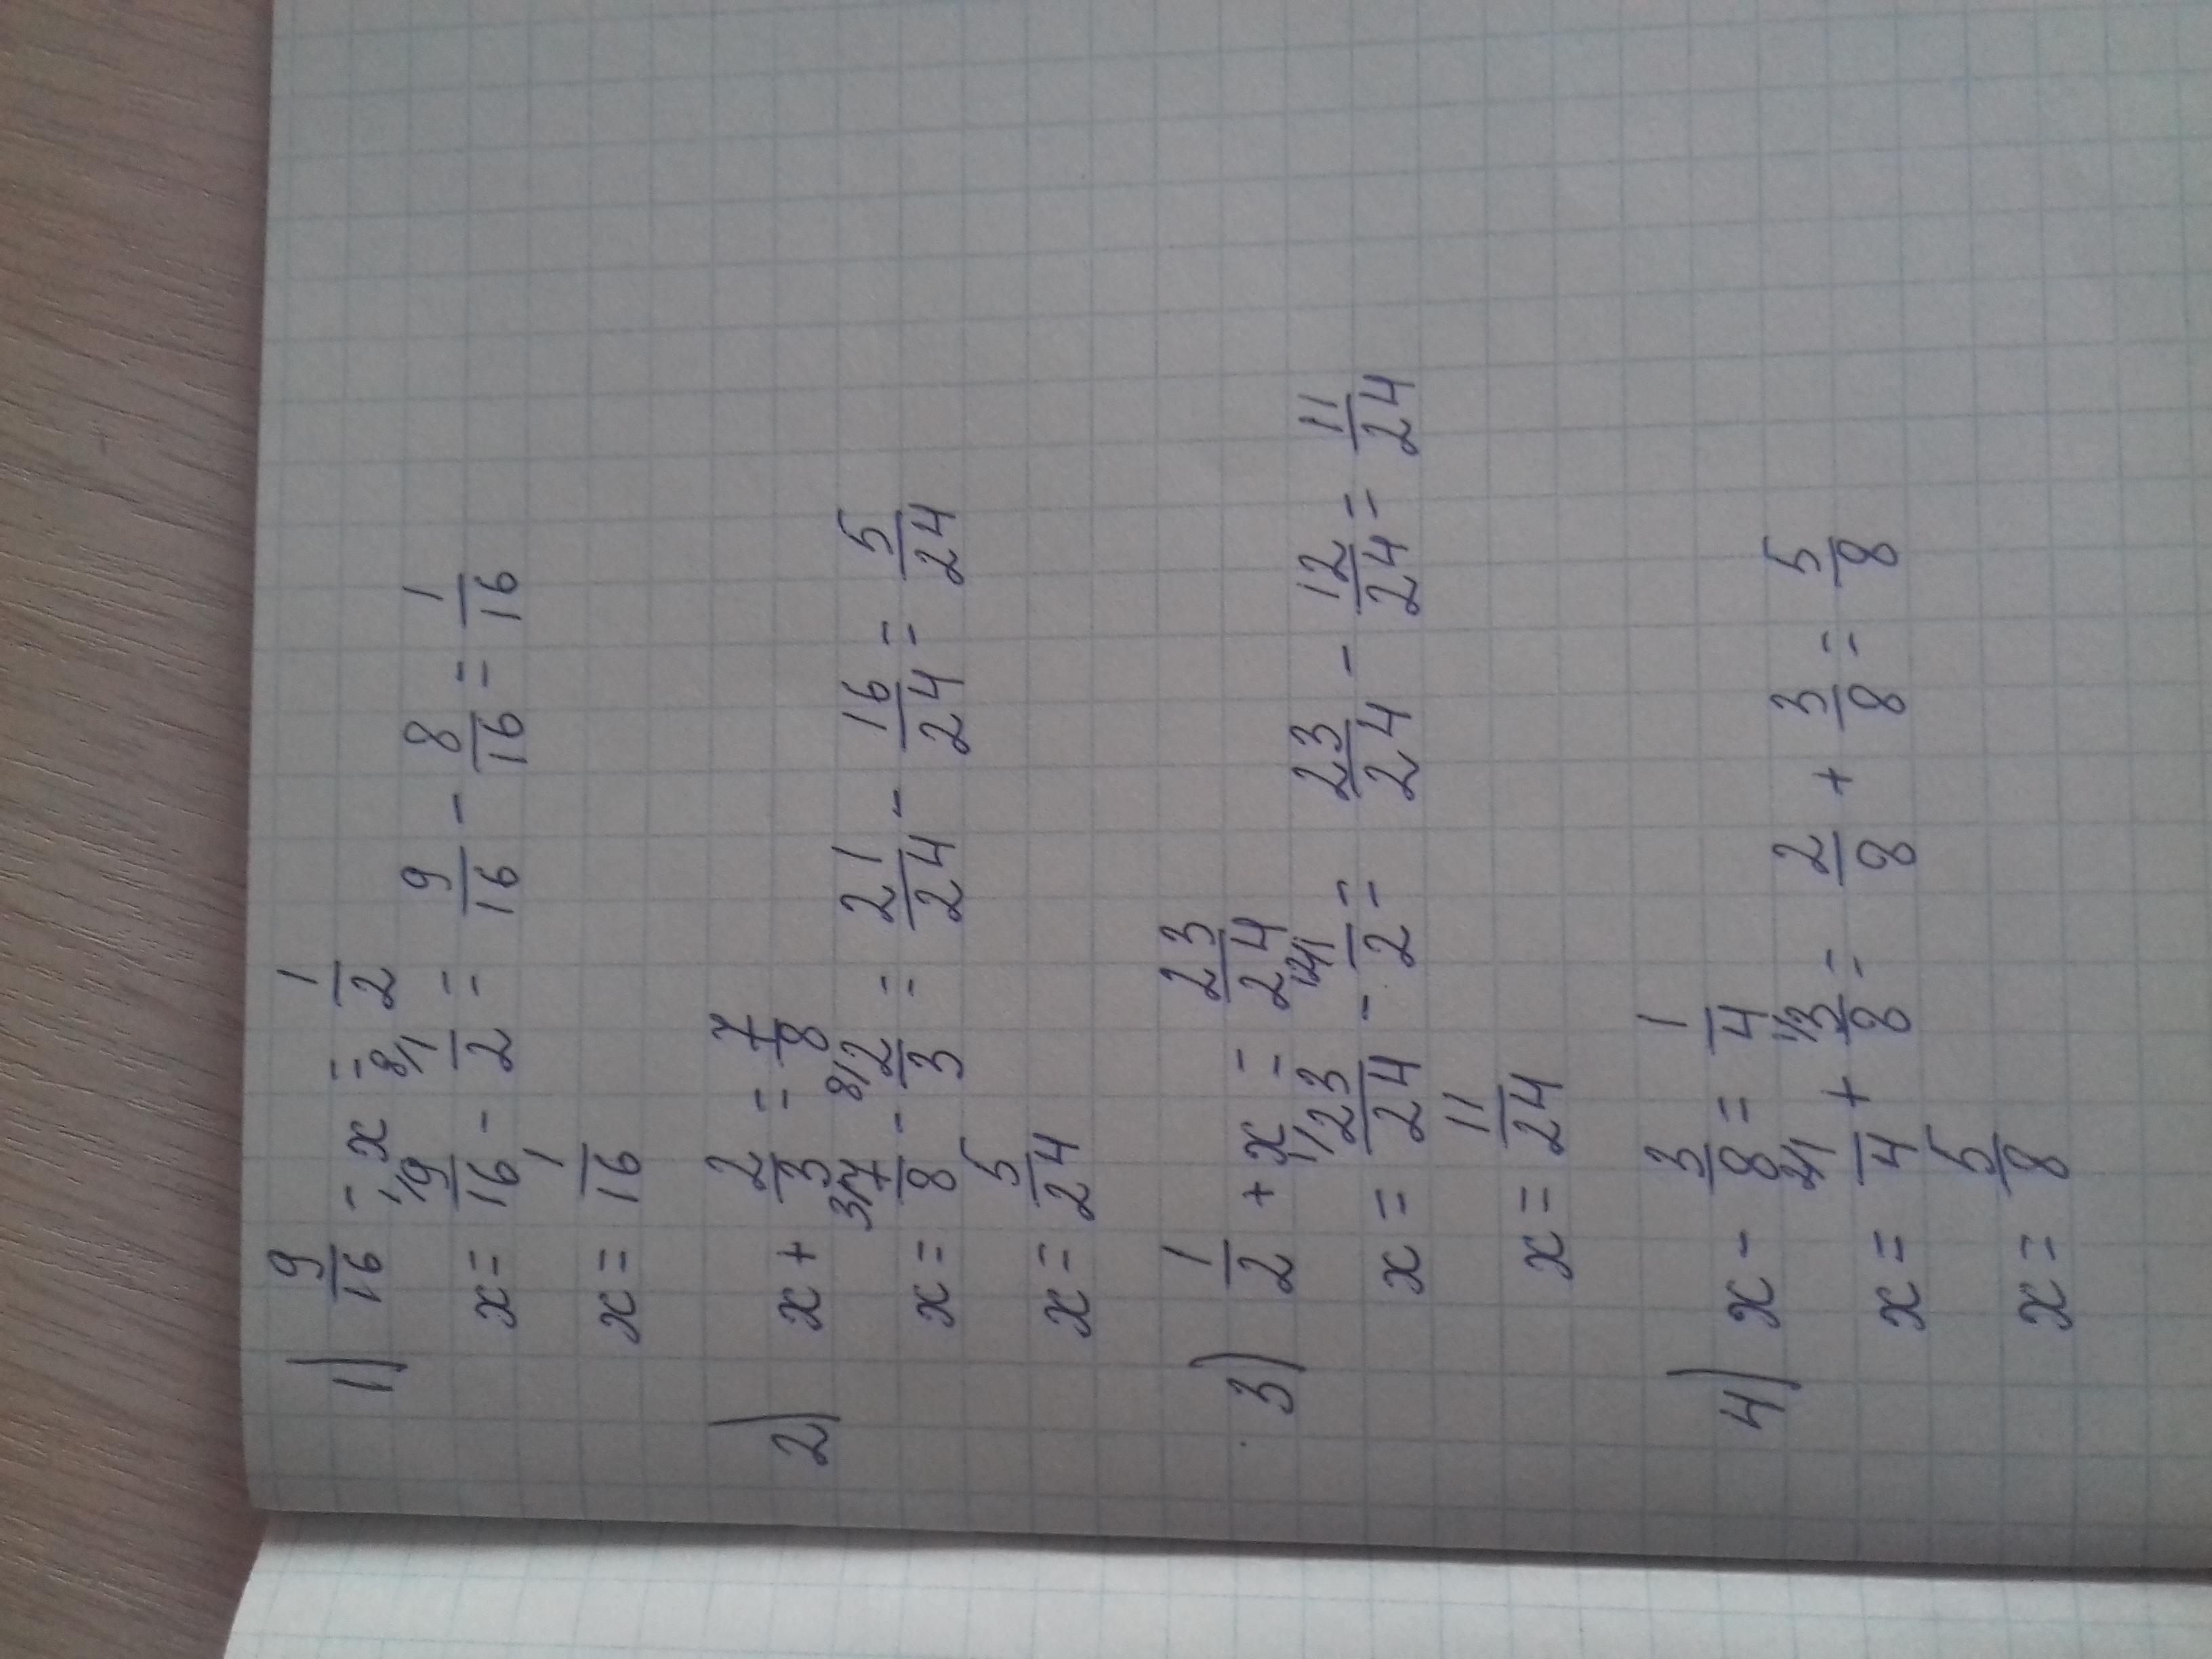 1) 9/16 - x = 1/2
x = ¹⁾9/16 - ⁸⁾1/2 = 9/16 - 8/16 = 1/16
x = 1/16
2) x + 2/3 = 7/8
x = ³⁾7/8 - ⁸⁾2/3 = 21/24 - 16/24 = 5/24
x = 5/24
3) 1/2 + x = 23/24
x = ¹⁾23/24 - ¹²⁾1/2 = 23/24 - 12/24 = 11/24
x = 11/24
4) x - 3/8 = 1/4
x = ²⁾1/4 + ¹⁾3/8 = 2/8 + 3/8 = 5/8
x = 5/8